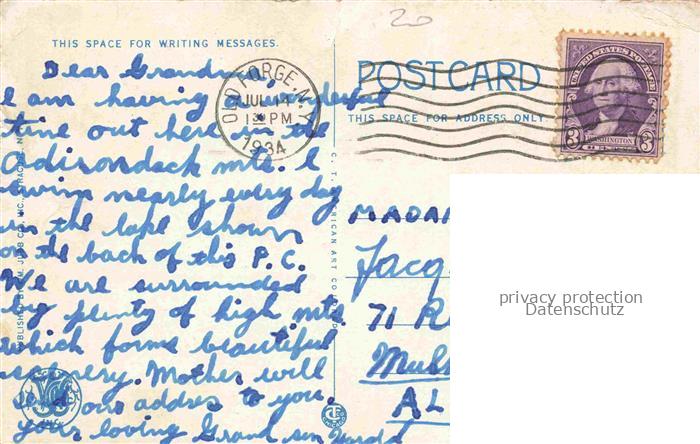 20
THIS SPACE FOR WRITING MESSAGES.
POSTCARD
THIS SPACE FOR ADDRESS ONLY
OLD FORGE, N.Y.
JUL 14
1 PM
1934
UNITED STATES POSTAGE
3 WASHINGTON 3
Dear Grandma,
I am having a wonderful
time out here in the
Adirondack mts. I
swim nearly every day
in the lake shown
on the back of this P.C.
We are surrounded
by plenty of high mts.
which forms beautiful
scenery. Mother will
send our addres to you.
your loving Grand son
MADA
Jacq
71 R
Mulh
AL
C. T. AMERICAN ART
privacy protection
Datenschutz